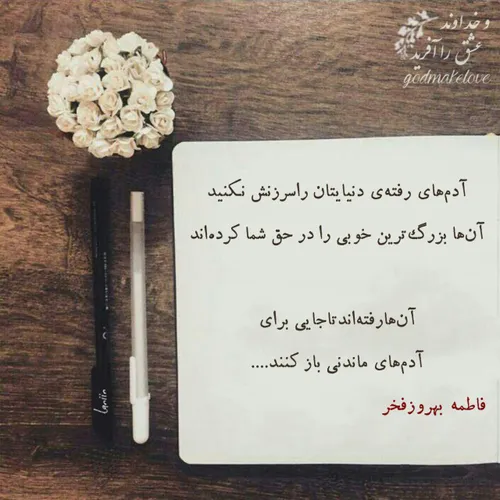 و خداوند
عشق را آفرید
godmakelove
آدم‌های رفته‌ی دنیایتان راسرزنش نکنید
آن‌ها بزرگ‌ترین خوبی را در حق شما کرده‌اند
آن‌هارفته‌اندتاجایی برای
آدم‌های ماندنی باز کنند....
فاطمه بهروزفخر